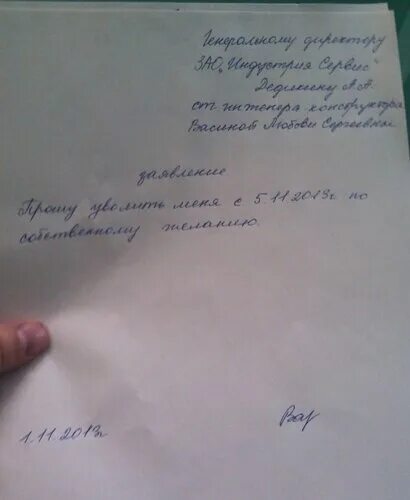 Генеральному директору
ЗАО „Индустрия Сервис"
Дедюхину А.А.
ст. инженера конструктора
Васиной Любови Сергеевны
заявление
Прошу уволить меня с 5.11.2013г по
собственному желанию.
1.11.2013г
Вас